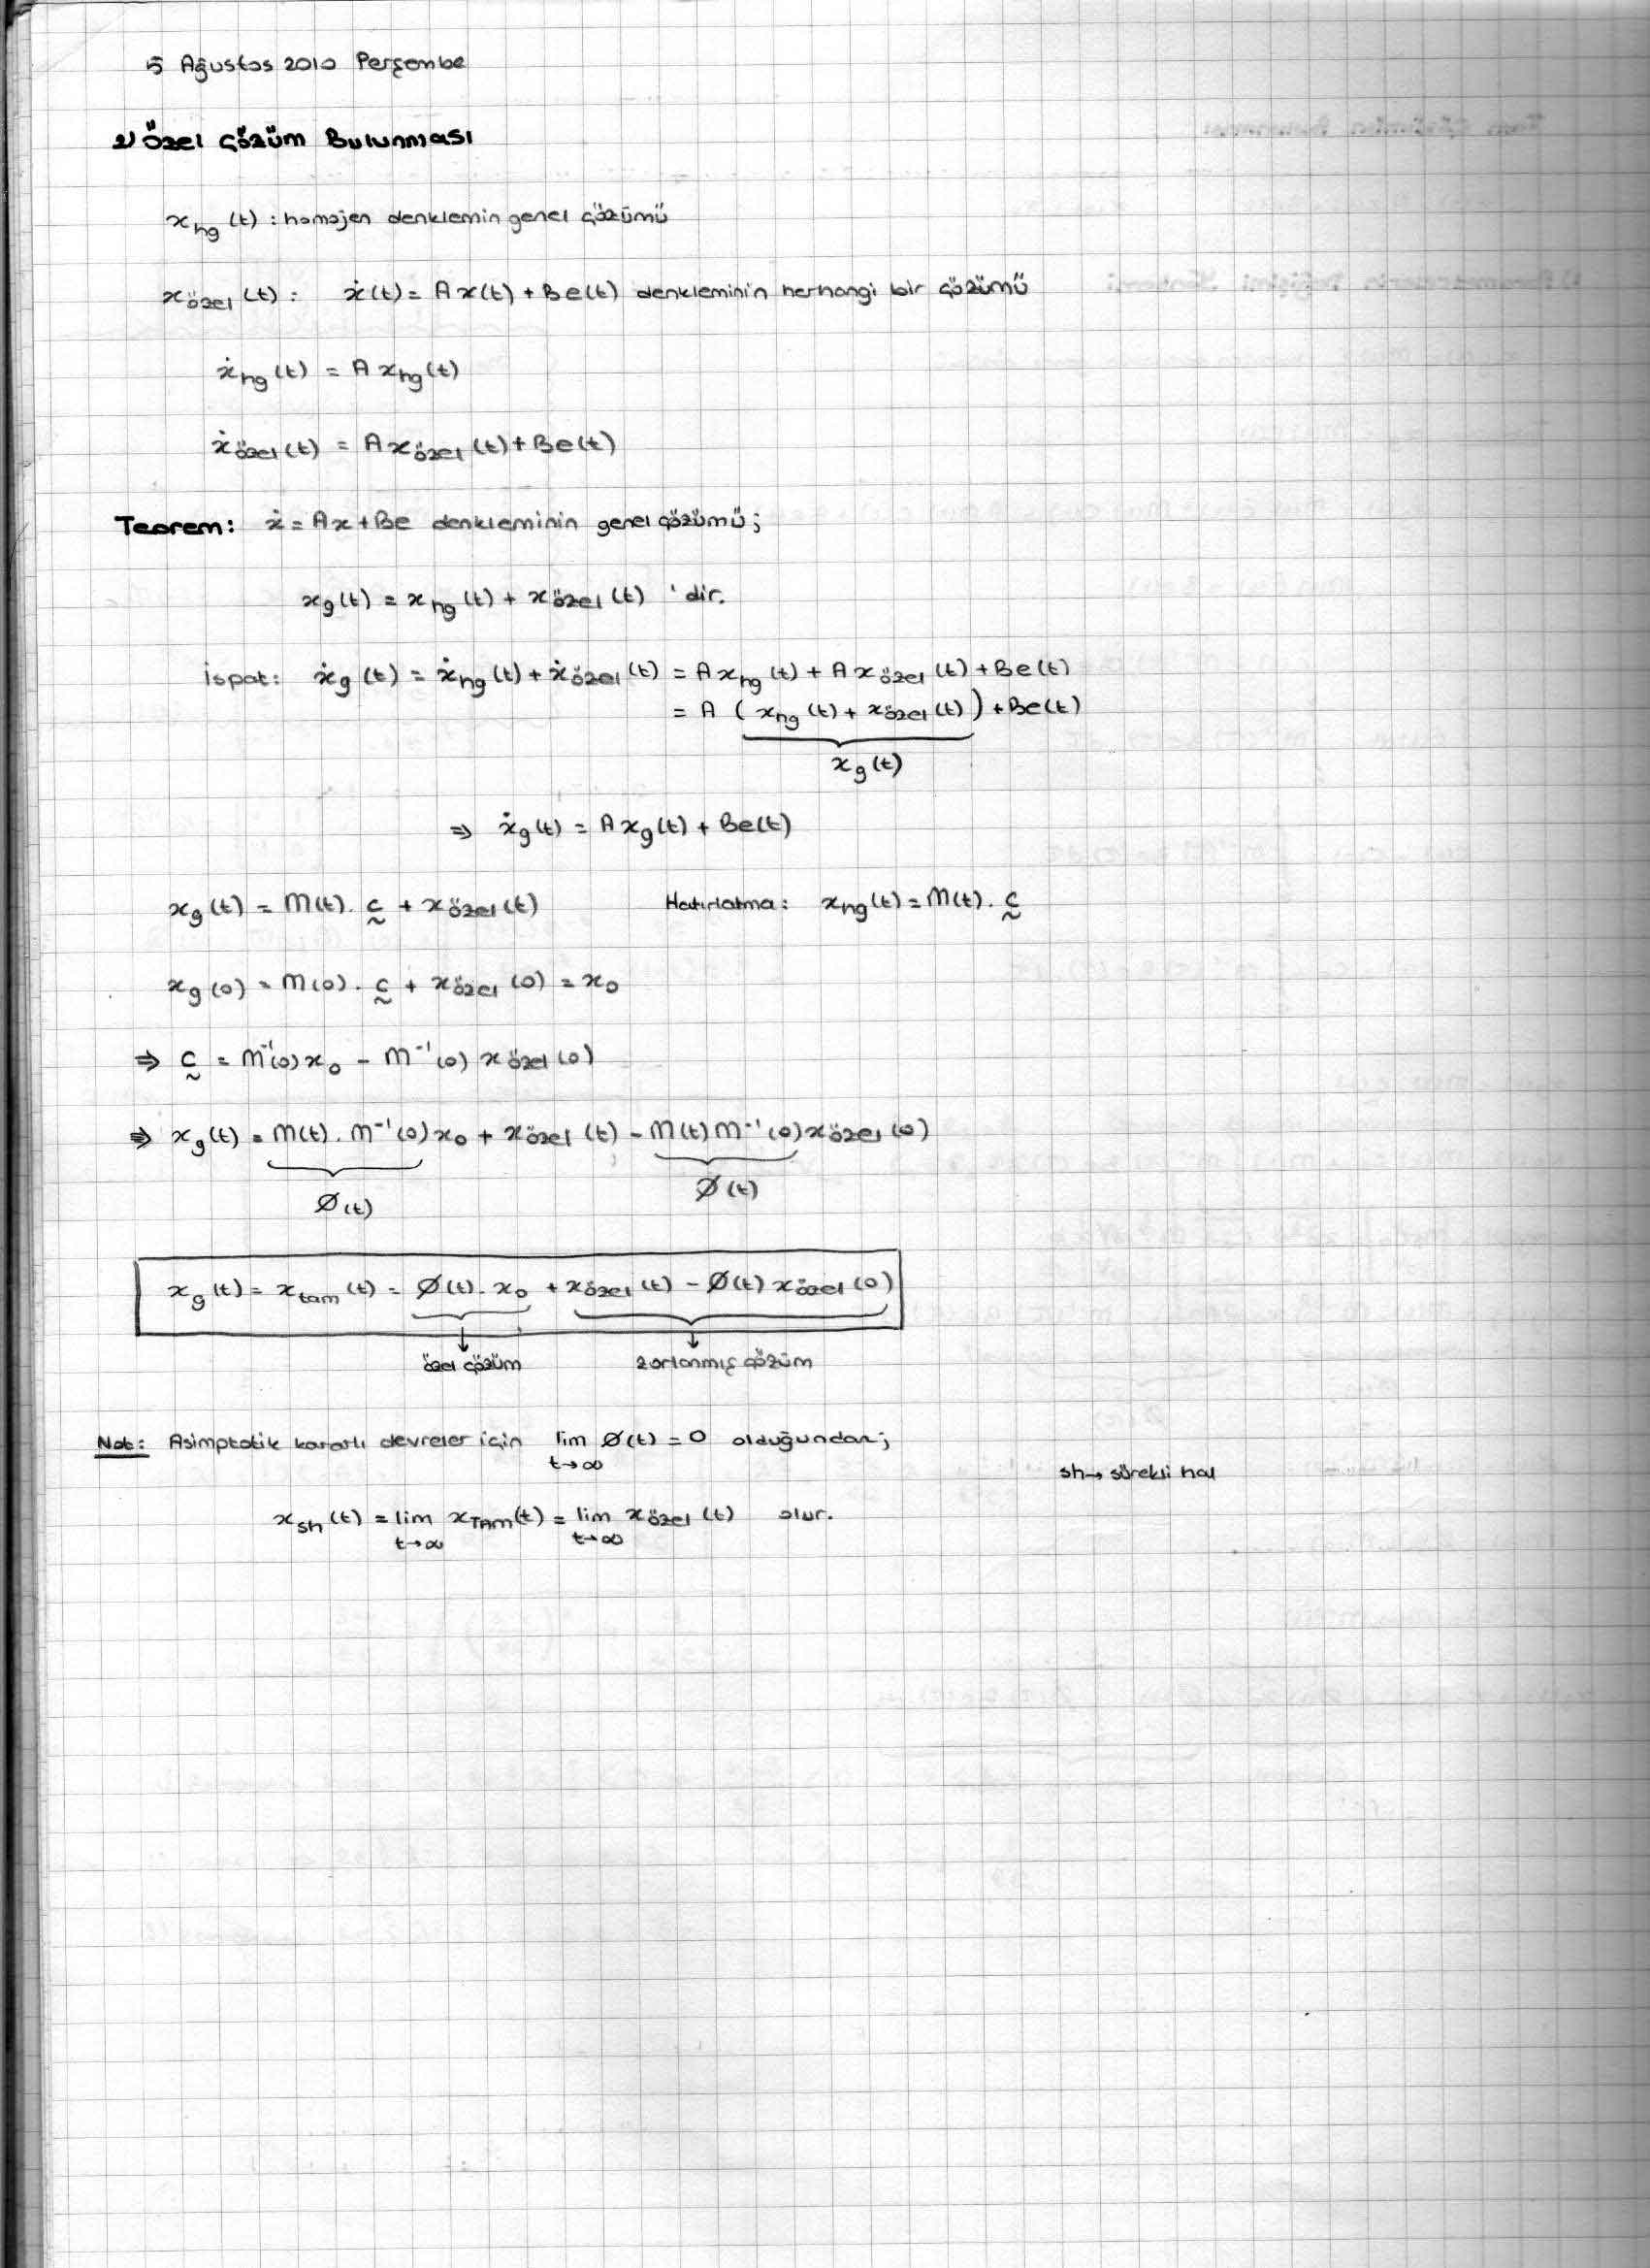 5 Ağustos 2010 Perşembe
2) Özel Çözüm Bulunması
x_hg (t) : homojen denklemin genel çözümü
x_özel (t) : ẋ(t) = A x(t) + Be(t) denkleminin herhangi bir çözümü
ẋ_hg (t) = A x_hg (t)
ẋ_özel (t) = A x_özel (t) + Be(t)
Teorem: ẋ = Ax + Be denkleminin genel çözümü;
x_g (t) = x_hg (t) + x_özel (t) 'dir.
İspat: ẋ_g (t) = ẋ_hg (t) + ẋ_özel (t) = A x_hg (t) + A x_özel (t) + Be(t)
= A ( x_hg (t) + x_özel (t) ) + Be(t)
x_g (t)
⇒ ẋ_g (t) = A x_g (t) + Be(t)
x_g (t) = M(t) . c̰ + x_özel (t) Hatırlatma: x_hg (t) = M(t) . c̰
x_g (0) = M(0) . c̰ + x_özel (0) = x_0
⇒ c̰ = M⁻¹(0) x_0 - M⁻¹(0) x_özel (0)
⇒ x_g (t) = M(t) . M⁻¹(0) x_0 + x_özel (t) - M(t) M⁻¹(0) x_özel (0)
Ø(t) Ø(t)
x_g (t) = x_tam (t) = Ø(t) . x_0 + x_özel (t) - Ø(t) x_özel (0)
↓ ↓
özel çözüm zorlanmış çözüm
Not: Asimptotik kararlı devreler için lim Ø(t) = 0 olduğundan;
t→∞
sh→ sürekli hal
x_sh (t) = lim x_TAM (t) = lim x_özel (t) olur.
t→∞ t→∞